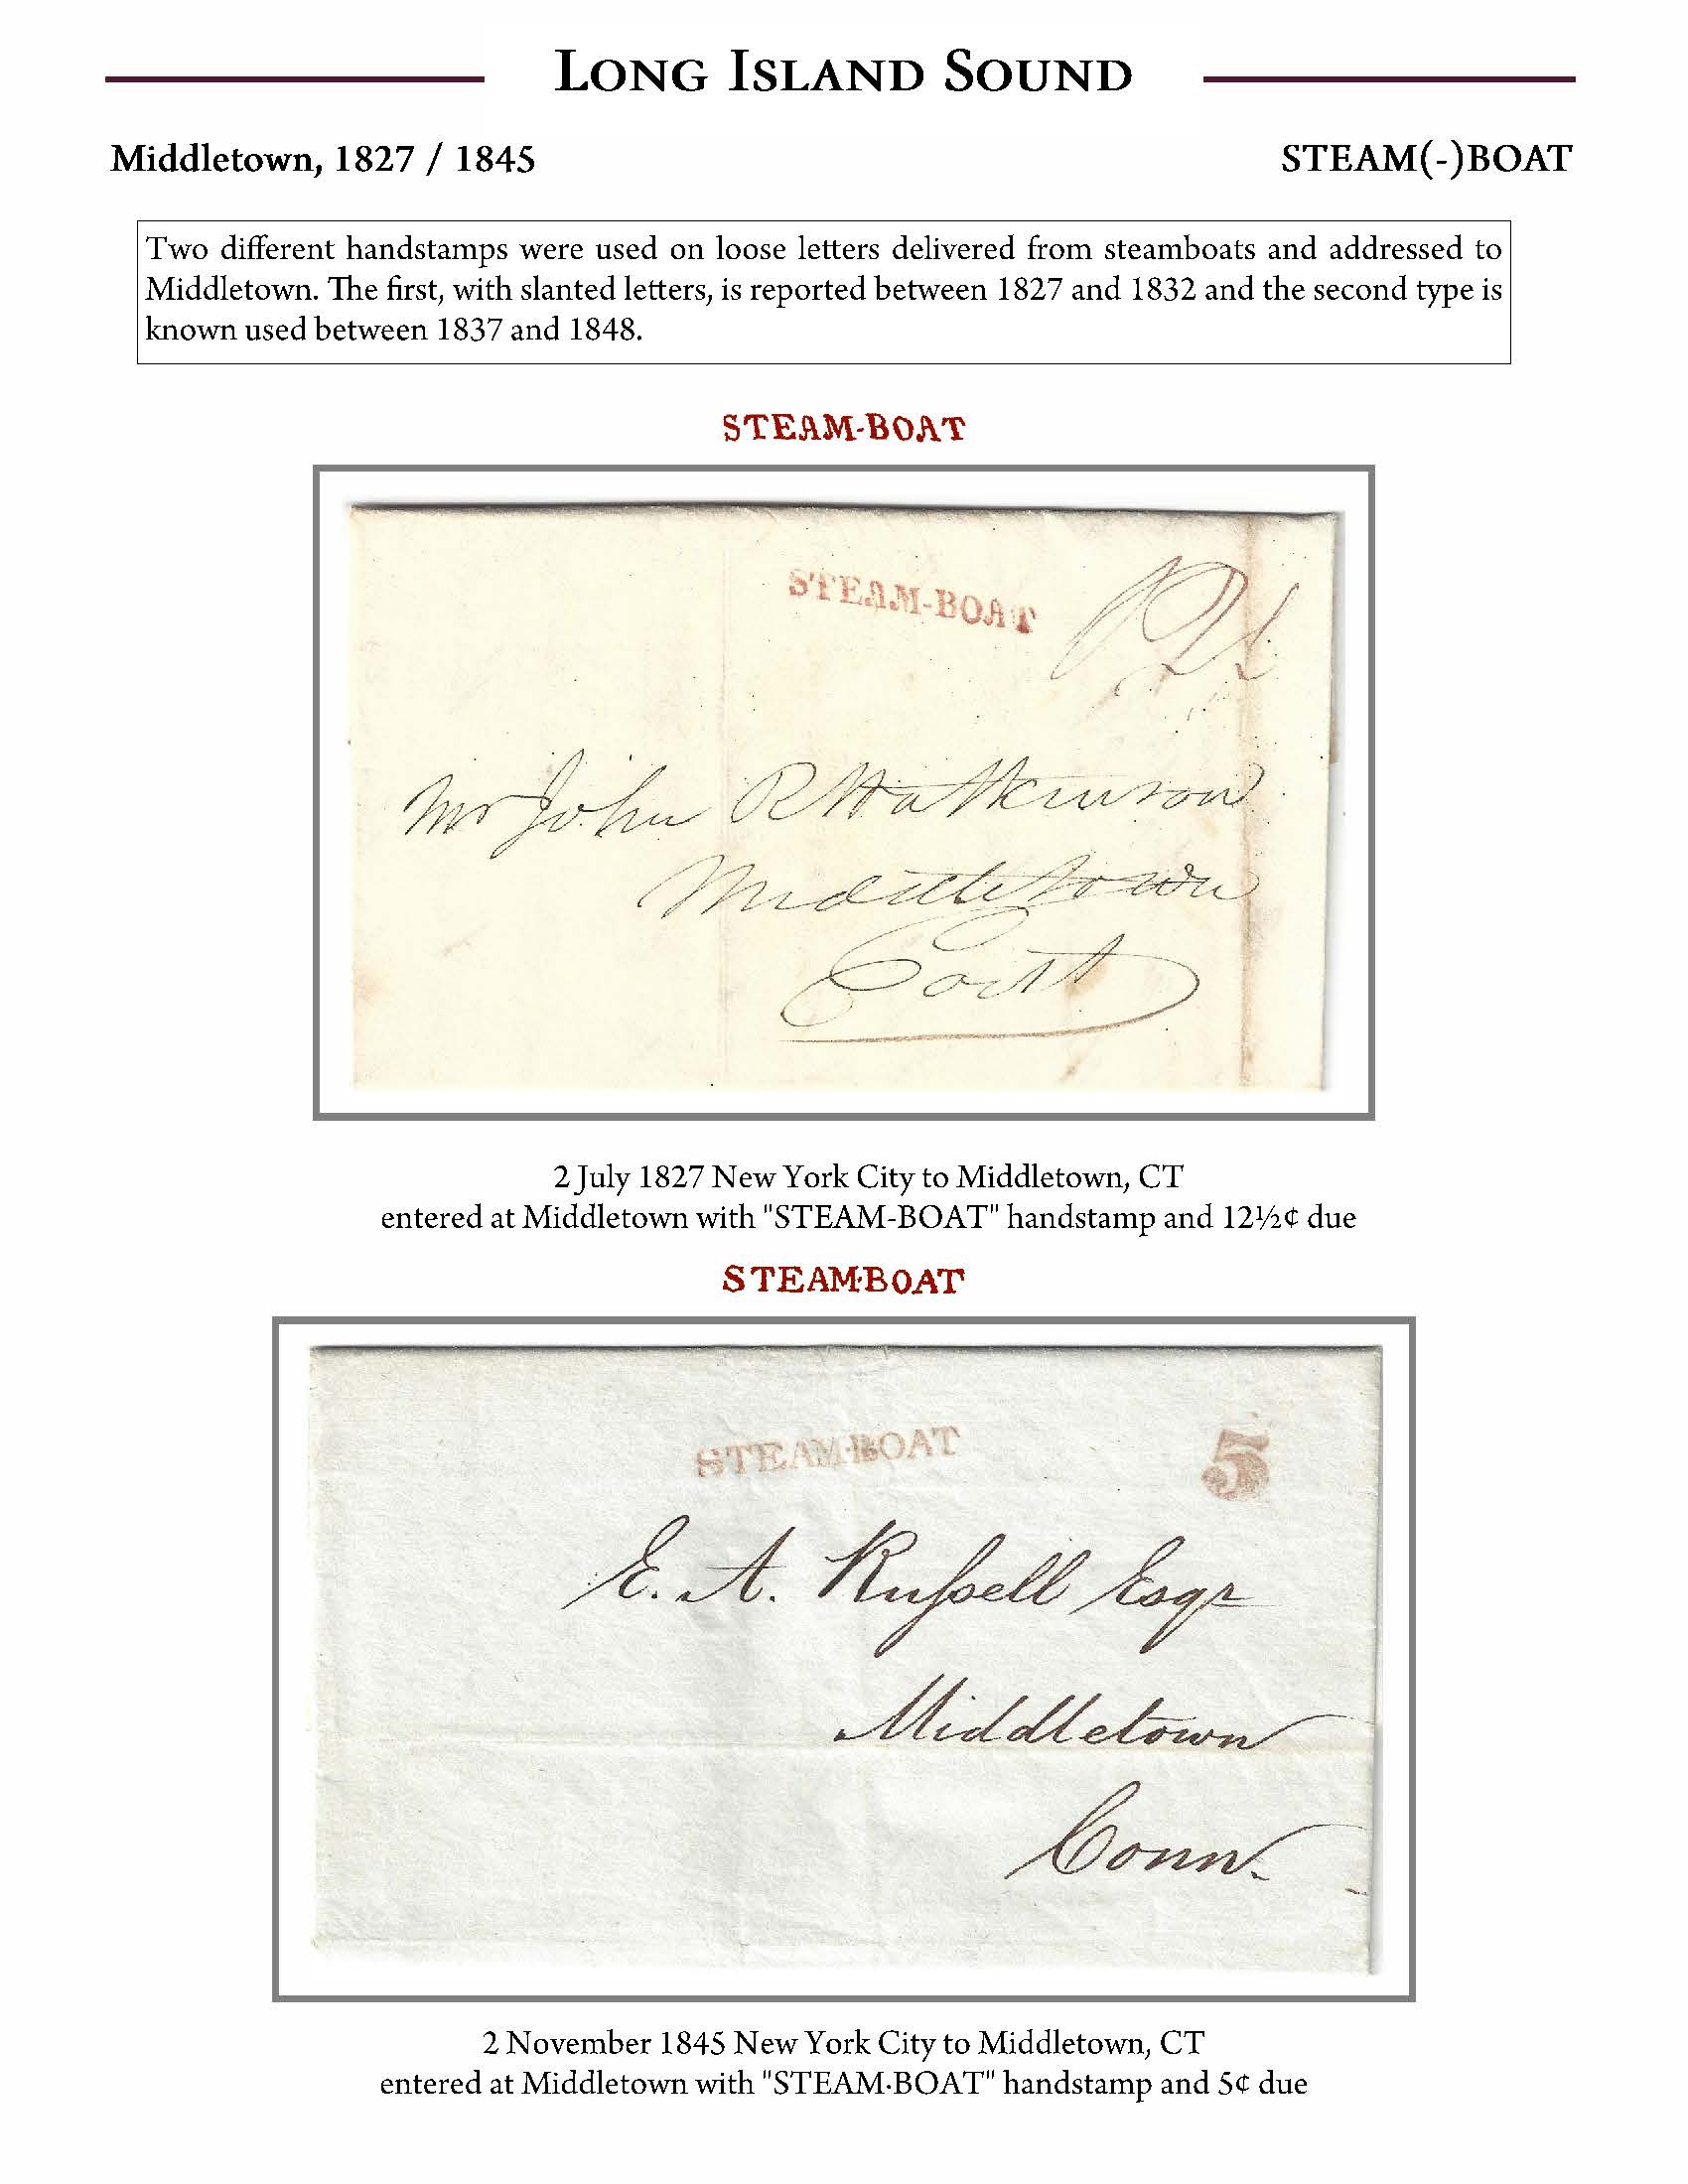 LONG ISLAND SOUND
Middletown, 1827 / 1845
STEAM(-)BOAT
Two different handstamps were used on loose letters delivered from steamboats and addressed to
Middletown. The first, with slanted letters, is reported between 1827 and 1832 and the second type is
known used between 1837 and 1848.
STEAM-BOAT
STEAM-BOAT
Mr John R Watkinson
Middletown
2 July 1827 New York City to Middletown, CT
entered at Middletown with "STEAM-BOAT" handstamp and 12½¢ due
STEAM·BOAT
STEAM·BOAT
5
E. A. Russell Esqr
Middletown
Conn.
2 November 1845 New York City to Middletown, CT
entered at Middletown with "STEAM·BOAT" handstamp and 5¢ due